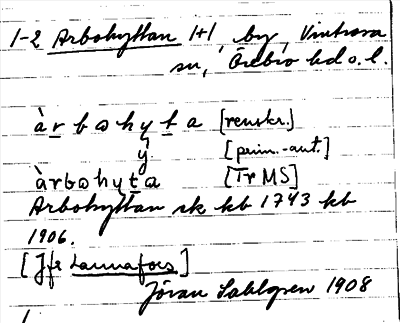 1-2 Arbohyttan 1+1, by, Vintrosa
sn, Örebro hd o. l.
àrbohyta [renskr.]
ẏ [prim.-ant.]
àrbohyta [Tr MS]
Arbohyttan sk kb 1743 kb
1906.
[Jfr Lannafors]
Jöran Sahlgren 1908